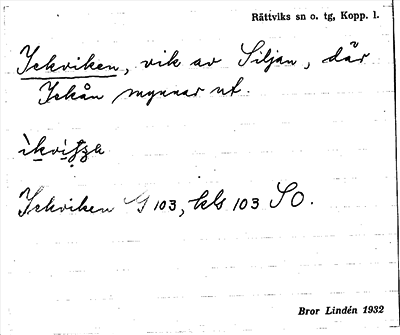 Rättviks sn o. tg, Kopp. l.
Ickviken, vik av Siljan, där
Ickån mynnar ut.
Ickviken G 103, kls 103 SO.
Bror Lindén 1932